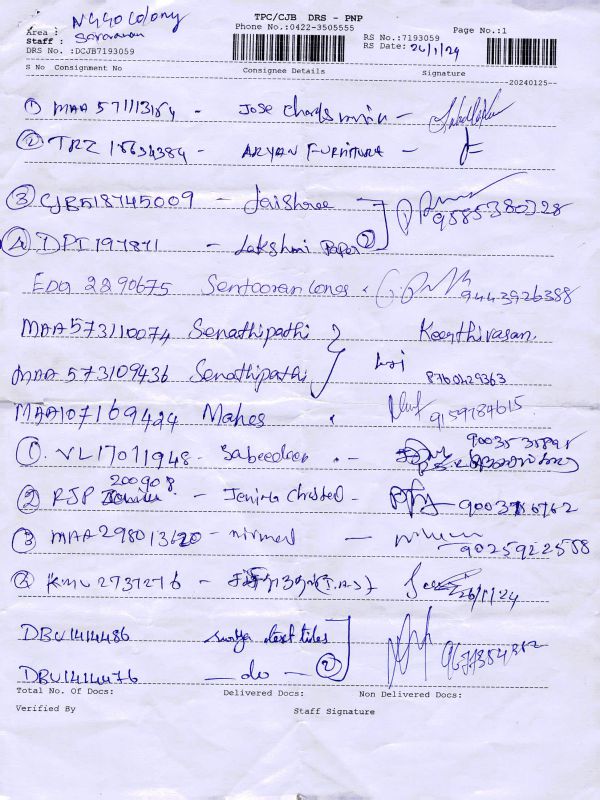 TPC/CJB DRS - PNP
Phone No.:0422-3505555
Page No.:1
Area : NGGO Colony
Staff : Saravanan
DRS No. :DCJB7193059
RS No.:7193059
RS Date: 26/1/24
S No Consignment No Consignee Details Signature
20240125
① MAA 571113184 - Jose Charls
② TRZ 15634384 - ARYAN FURNITURE -
③ CJB518745009 - Jaishree
9585380228
④ DPI 197871 - Lakshmi Paper ②
EDA 2890675 Sentooran Cones 9443926388
MAA573110074 Senathipathi Keerthivasan
MAA 573109436 Senathipathi 8760429363
MAA107169424 Mahes 9159784615
① VL17011948 - Sabeedeen -
② RJP 200908 - Jenina Christed - 9003786762
③ MAA298013620 - nirmal - 9025922588
④ KMU 2737276 - 26/1/24
DBU1414486 Surya textiles
DBU1414476 - do - ②
Total No. Of Docs: Delivered Docs: Non Delivered Docs:
Verified By Staff Signature